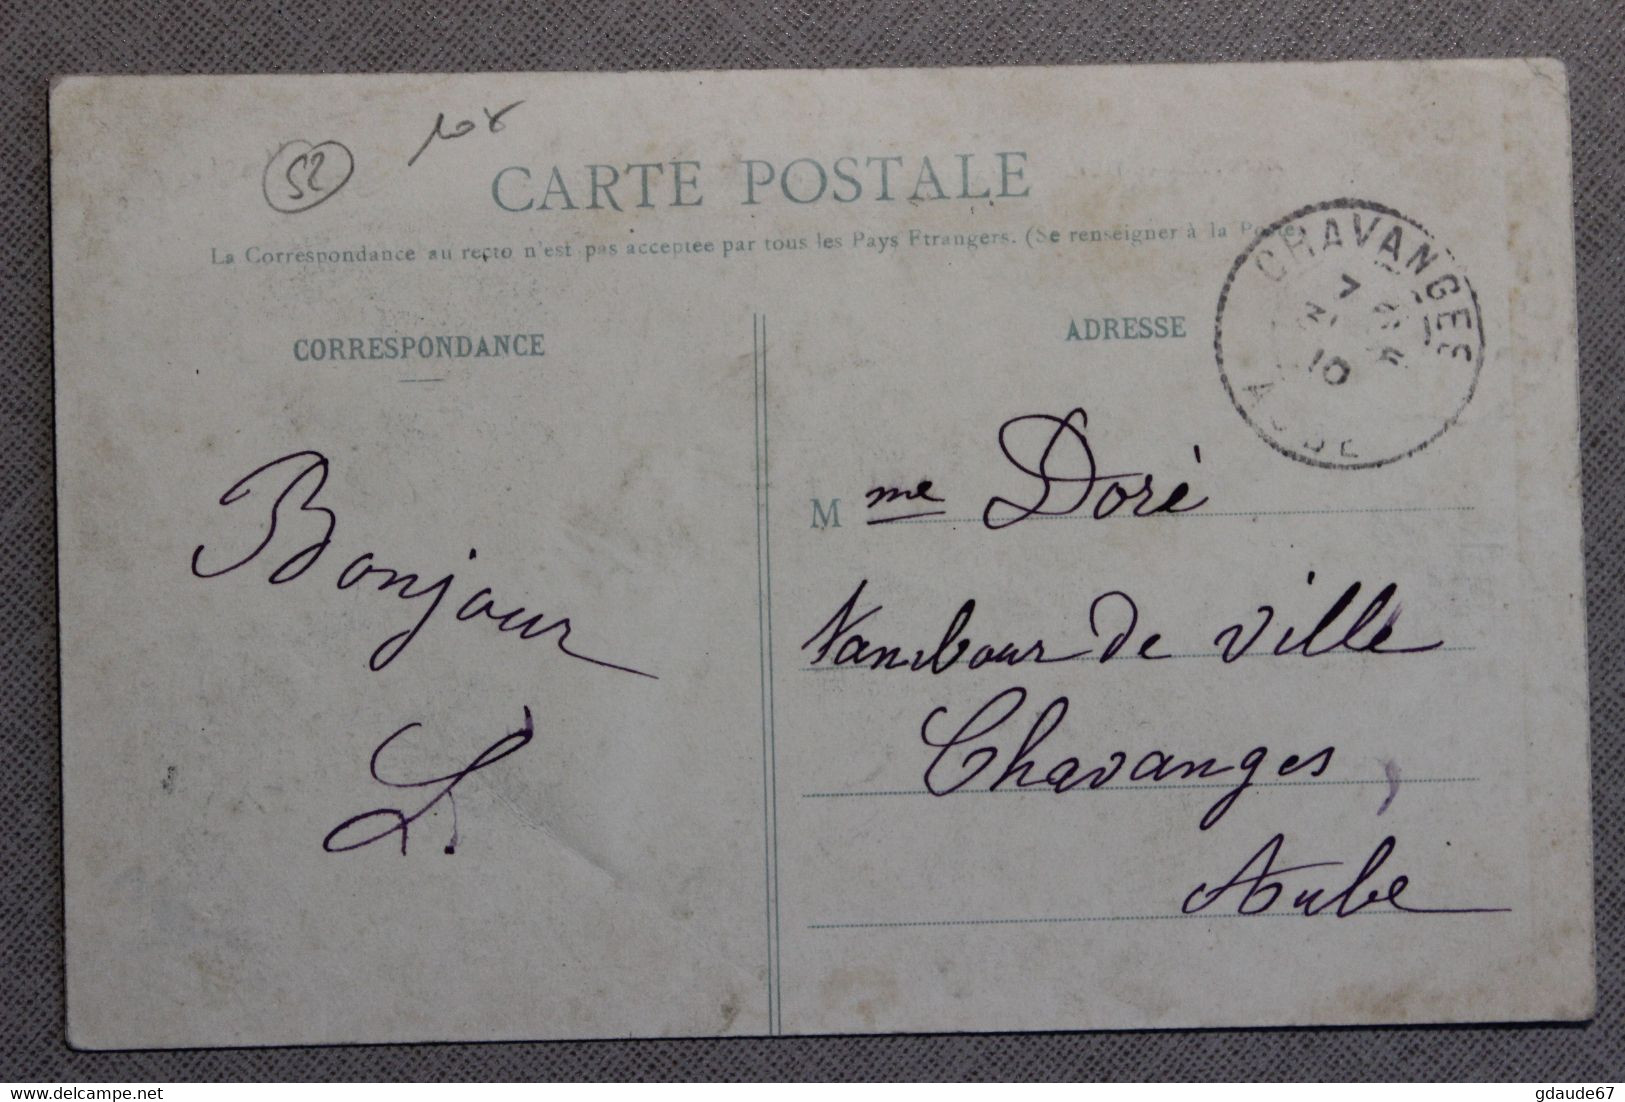 52
108
CARTE POSTALE
La Correspondance au recto n'est pas acceptée par tous les Pays Etrangers. (Se renseigner à la Poste)
CORRESPONDANCE
ADRESSE
CHAVANGES
AUBE
Bonjour
L.
M me Doré
Tambour de Ville
Chavanges,
Aube
gdaude67